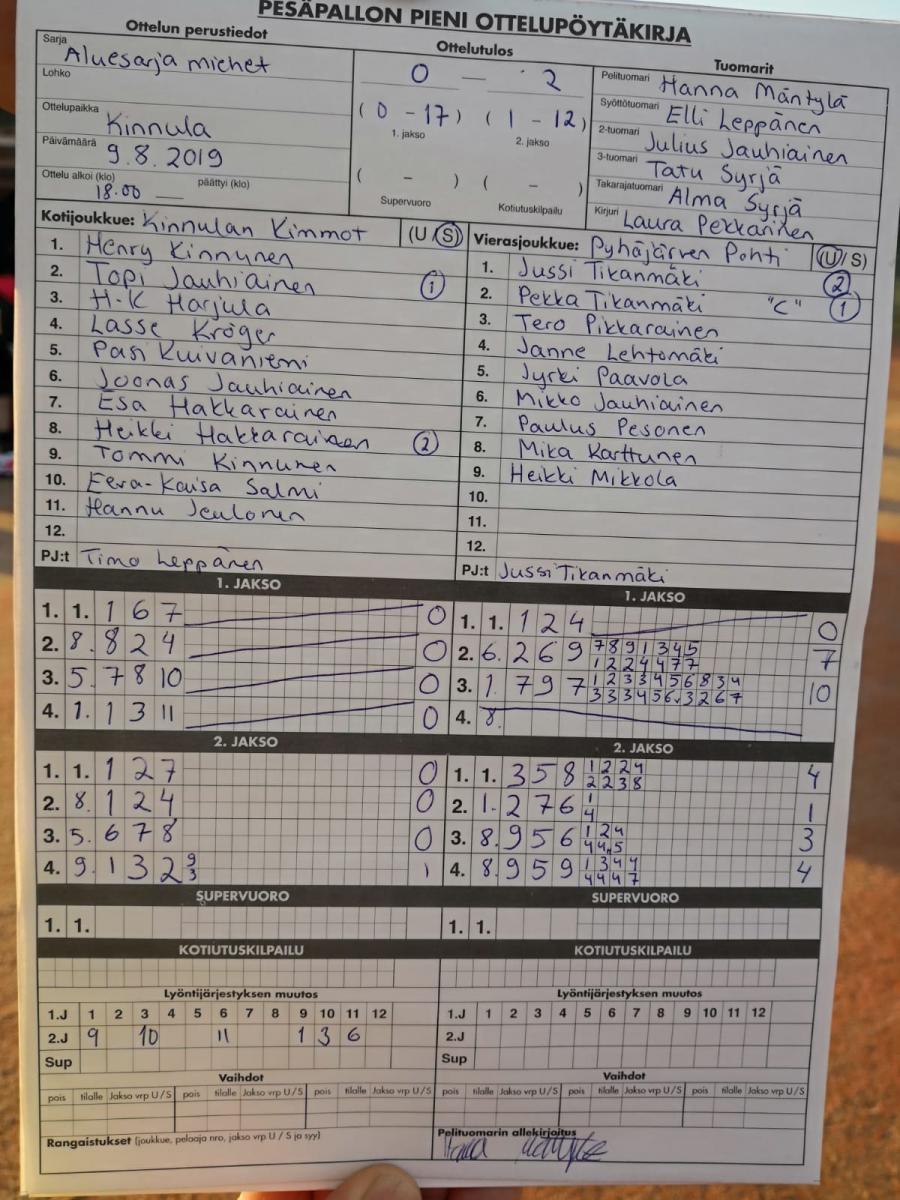 PESÄPALLON PIENI OTTELUPÖYTÄKIRJA
Ottelun perustiedot
Sarja Aluesarja miehet
Lohko
Ottelupaikka Kinnula
Päivämäärä 9.8.2019
Ottelu alkoi (klo) 18.00 päättyi (klo)
Ottelutulos
0 — 2
( 0 - 17 ) ( 1 - 12 )
1. jakso 2. jakso
( - ) ( - )
Supervuoro Kotiutuskilpailu
Tuomarit
Pelituomari Hanna Mäntylä
Syöttötuomari Elli Leppänen
2-tuomari Julius Jauhiainen
3-tuomari Tatu Syrjä
Takarajatuomari Alma Syrjä
Kirjuri Laura Pekkarinen
Kotijoukkue: Kinnulan Kimmot (U/S)
1. Henry Kinnunen
2. Topi Jauhiainen 1
3. H-K Harjula
4. Lasse Kröger
5. Pasi Kuivaniemi
6. Joonas Jauhiainen
7. Esa Hakkarainen
8. Heikki Hakkarainen 2
9. Tommi Kinnunen
10. Eeva-Kaisa Salmi
11. Hannu Jeulonen
12.
PJ:t Timo Leppänen
Vierasjoukkue: Pyhäjärven Pohti (U/S)
1. Jussi Tikanmäki 2
2. Pekka Tikanmäki "C" 1
3. Tero Pikkarainen
4. Janne Lehtomäki
5. Jyrki Paavola
6. Mikko Jauhiainen
7. Paulus Pesonen
8. Mika Karttunen
9. Heikki Mikkola
10.
11.
12.
PJ:t Jussi Tikanmäki
1. JAKSO
1. 1. 1 6 7 0
2. 8. 8 2 4 0
3. 5. 7 8 10 0
4. 1. 1 3 11 0
1. JAKSO
1. 1. 1 2 4 0
2. 6. 2 6 9 7 8 9 1 3 4 5 7
1 2 2 4 4 7 7
3. 1. 7 9 7 1 2 3 3 4 5 6 8 3 4 10
3 3 3 4 5 6. 3 2 6 7
4. 8.
2. JAKSO
1. 1. 1 2 7 0
2. 8. 1 2 4 0
3. 5. 6 7 8 0
4. 9. 1 3 2 9 1
3
2. JAKSO
1. 1. 3 5 8 1 2 2 4 4
2 2 3 8
2. 1. 2 7 6 1 1
4
3. 8. 9 5 6 1 2 4 3
4 4 5
4. 8. 9 5 9 1 3 4 4 4
4 4 4 7
SUPERVUORO
1. 1.
SUPERVUORO
1. 1.
KOTIUTUSKILPAILU
KOTIUTUSKILPAILU
Lyöntijärjestyksen muutos
1.J 1 2 3 4 5 6 7 8 9 10 11 12
2.J 9 10 11 1 3 6
Sup
Lyöntijärjestyksen muutos
1.J 1 2 3 4 5 6 7 8 9 10 11 12
2.J
Sup
Vaihdot
pois tilalle Jakso vrp U/S pois tilalle Jakso vrp U/S pois tilalle Jakso vrp U/S
Vaihdot
pois tilalle Jakso vrp U/S pois tilalle Jakso vrp U/S pois tilalle Jakso vrp U/S
Rangaistukset (joukkue, pelaaja nro, jakso vrp U / S ja syy)
Pelituomarin allekirjoitus